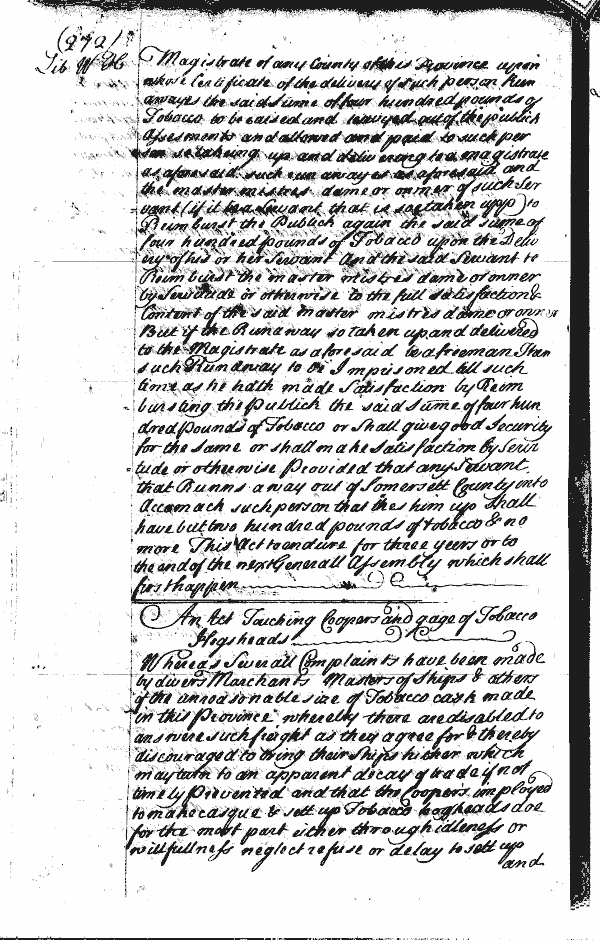 (272)
Lib W H
Magistrate of any County of this Province upon
whose Certificate of the delivery of such person Run
awayes the said Sume of four hundred pounds of
Tobacco to be raised and levyed out of the publick
Assesments and allowed and paid to such per
son so takeing up and delivering to a magistrate
as aforesaid such run awayes as aforesaid and
the master mistres dame or owner of such Ser
vant (if it be a Servant that is soe taken upp) to
Reimburst the Publick again the said sume of
four hundred pounds of Tobacco upon the Deliv
ery of his or her Servant And the said Servant to
Reimburst the master mistres dame or owner
by Servitude or otherwise to the full Satisfaction &
Content of the said master mistres dame or owner
But if the Runaway so taken up and delivered
to the Magistrate as aforesaid be a freeman Then
such Runaway to be Imprisoned till such
time as he hath made Satisfaction by Reim
bursting the Publick the said Sume of four hun
dred pounds of Tobacco or shall give good Security
for the same or shall make Satisfaction by Servi
tude or otherwise Provided that any Servant
that Runns away out of Somersett County into
Accomack such person that takes him up shall
have but two hundred pounds of tobacco & no
more This Act to endure for three yeers or to
the end of the next Generall Assembly which shall
first happen
An Act Touching Coopers and gage of Tobacco
Hogsheads
Whereas Severall Complaints have been made
by divers Marchants Masters of Ships & others
of the unreasonable size of Tobacco cask made
in this Province whereby there are disabled to
answere such freight as they agree for & thereby
discouraged to bring their Ships hither which
may turn to an apparent decay of trade if not
timely Prevented and that the Coopers imployed
to make casque & sett up Tobacco hogsheads doe
for the most part either through idleness or
willfullness neglect refuse or delay to sett up
and